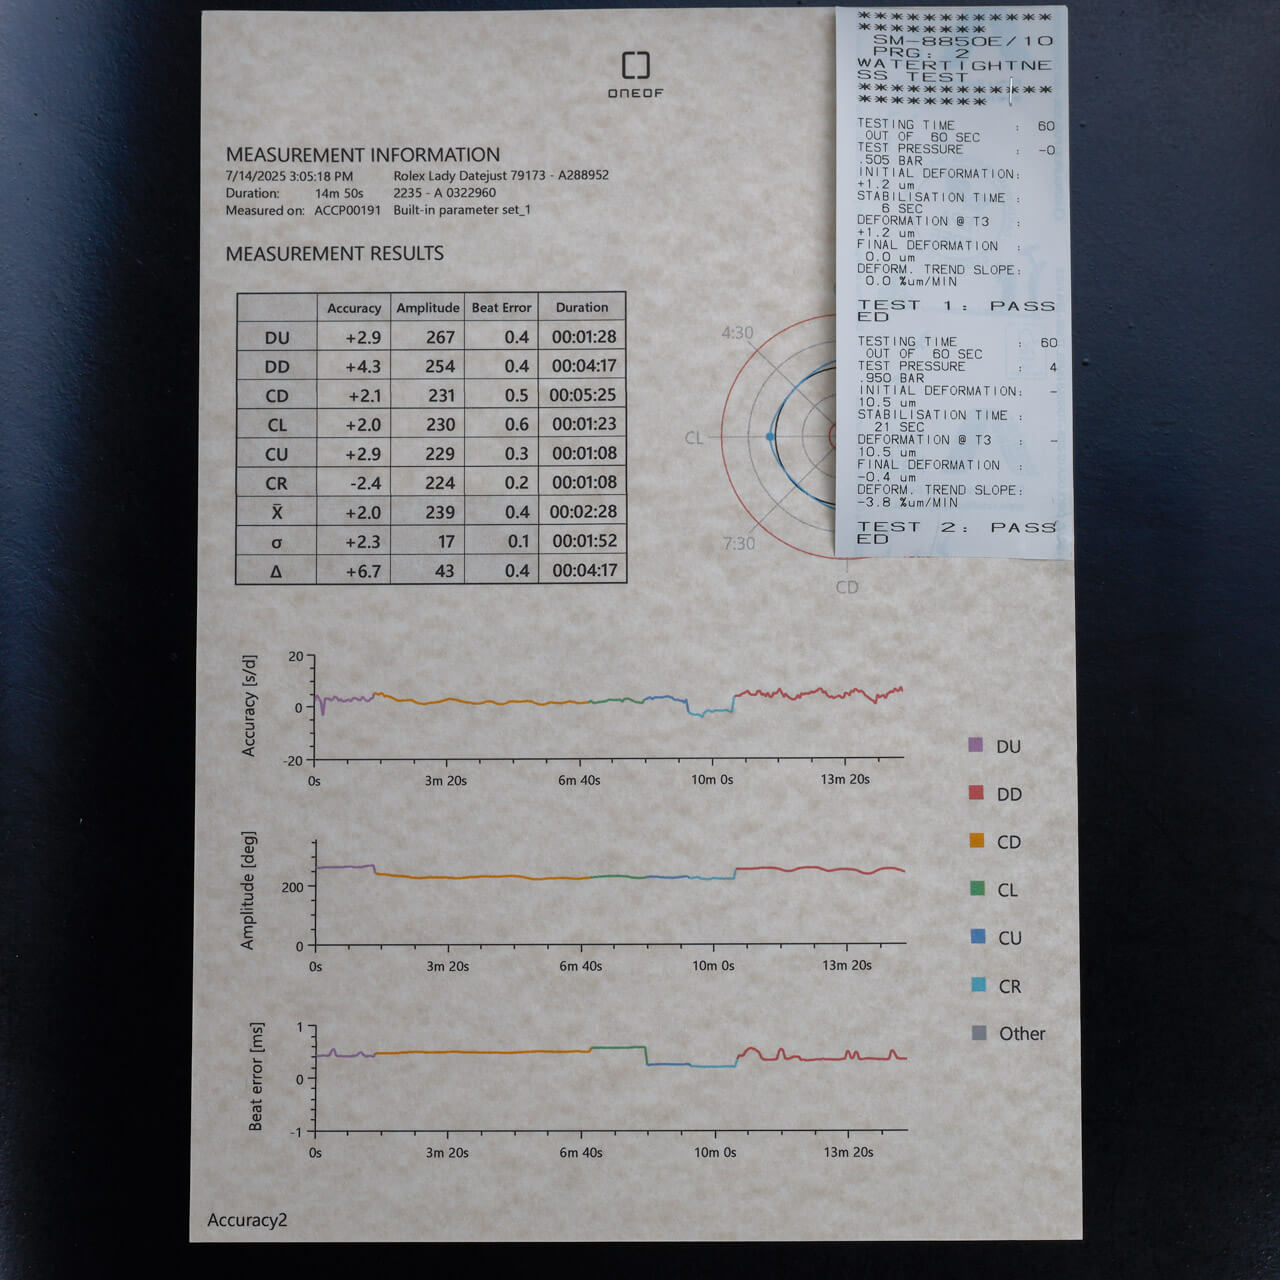 ONEOF
MEASUREMENT INFORMATION
7/14/2025 3:05:18 PM Rolex Lady Datejust 79173 - A288952
Duration: 14m 50s 2235 - A 0322960
Measured on: ACCP00191 Built-in parameter set_1
MEASUREMENT RESULTS
Accuracy Amplitude Beat Error Duration
DU +2.9 267 0.4 00:01:28
DD +4.3 254 0.4 00:04:17
CD +2.1 231 0.5 00:05:25
CL +2.0 230 0.6 00:01:23
CU +2.9 229 0.3 00:01:08
CR -2.4 224 0.2 00:01:08
X̄ +2.0 239 0.4 00:02:28
σ +2.3 17 0.1 00:01:52
Δ +6.7 43 0.4 00:04:17
4:30
CL
7:30
CD
*************
********
SM-8850E/10
PRG: 2
WATERTIGHTNE
SS TEST
*************
********
TESTING TIME : 60
OUT OF 60 SEC
TEST PRESSURE : -0
.505 BAR
INITIAL DEFORMATION:
+1.2 um
STABILISATION TIME :
6 SEC
DEFORMATION @ T3 :
+1.2 um
FINAL DEFORMATION :
0.0 um
DEFORM. TREND SLOPE:
0.0 %um/MIN
TEST 1: PASS
ED
TESTING TIME : 60
OUT OF 60 SEC
TEST PRESSURE : 4
.950 BAR
INITIAL DEFORMATION: -
10.5 um
STABILISATION TIME :
21 SEC
DEFORMATION @ T3 : -
10.5 um
FINAL DEFORMATION :
-0.4 um
DEFORM. TREND SLOPE:
-3.8 %um/MIN
TEST 2: PASS
ED
Accuracy [s/d]
20
0
-20
0s 3m 20s 6m 40s 10m 0s 13m 20s
Amplitude [deg]
200
0
0s 3m 20s 6m 40s 10m 0s 13m 20s
Beat error [ms]
1
0
-1
0s 3m 20s 6m 40s 10m 0s 13m 20s
DU
DD
CD
CL
CU
CR
Other
Accuracy2